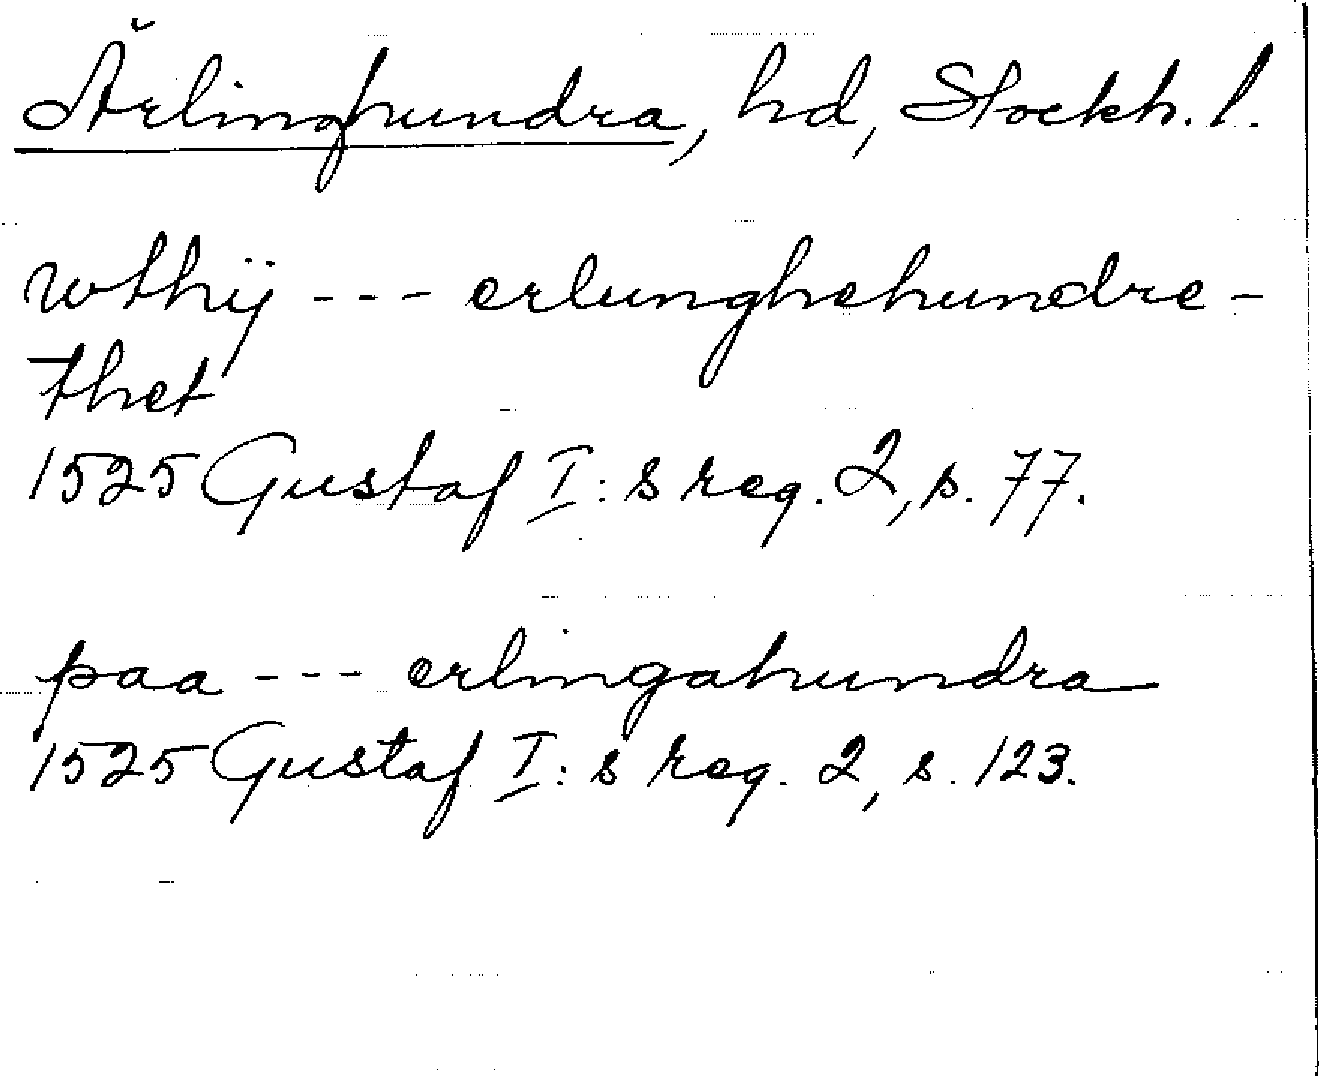 Ärlinghundra, hd, Stockh. l.
wthij --- erlunghehundre-
thet
1525 Gustaf I:s reg. 2, s. 77.
paa --- erlingahundra
1525 Gustaf I:s reg. 2, s. 123.